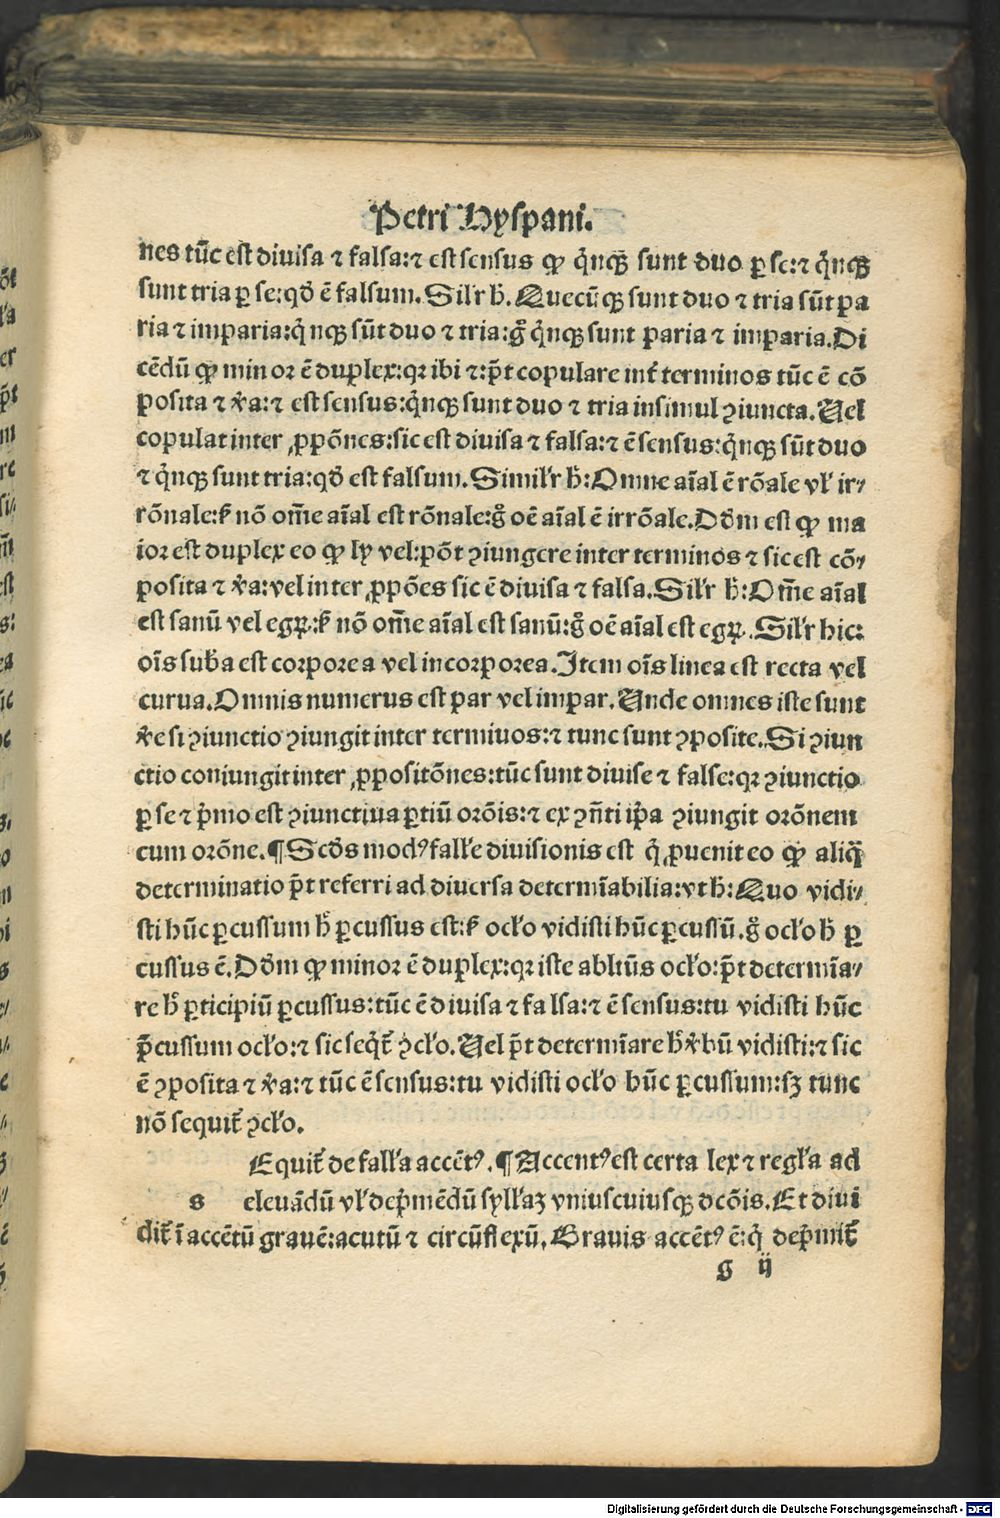 Petri Hyspani.
nes tūc est diuisa ⁊ falsa:⁊ est sensus ꝙ q̇nqꝫ sunt duo ꝑ se:⁊ q̇nqꝫ
sunt tria ꝑ se:qd̄ ē falsum. Silr̄ h̄. Quecūqꝫ sunt duo ⁊ tria sūt pa
ria ⁊ imparia:q̇nqꝫ sūt duo ⁊ tria:gͦ q̇nqꝫ sunt paria ⁊ imparia. Di
cēdū ꝙ minor ē duplex:qꝛ ibi ⁊:pt̄ copulare int̄ terminos tūc ē cō
posita ⁊ v̄a:⁊ est sensus:q̇nqꝫ sunt duo ⁊ tria insimul ꝯiuncta. Uel
copulat inter ꝓpōnes:sic est diuisa ⁊ falsa:⁊ ē sensus:q̇nqꝫ sūt duo
⁊ q̇nqꝫ sunt tria:qd̄ est falsum. Similr̄ h̄:Omne aīal ē rōale vl̓ ir⸗
rōnale:sꝫ nō om̄e aīal est rōnale:gͦ oē aīal ē irrōale. Dd̄m est ꝙ ma
ior est duplex eo ꝙ ly vel:pōt ꝯiungere inter terminos ⁊ sic est cō⸗
posita ⁊ v̄a:vel inter ꝓpōes sic ē diuisa ⁊ falsa. Silr̄ h̄:Om̄e aīal
est sanū vel egꝝ:sꝫ nō om̄e aīal est sanū:gͦ oē aīal est egꝝ. Silr̄ hic:
oīs sub̄a est corporea vel incorporea. Item oīs linea est recta vel
curua. Omnis numerus est par vel impar. Unde omnes iste sunt
v̄e si ꝯiunctio ꝯiungit inter termiuos:⁊ tunc sunt ꝯposite. Si ꝯiun
ctio coniungit inter ꝓpositōnes:tūc sunt diuise ⁊ false:qꝛ ꝯiunctio
ꝑ se ⁊ pͥmo est ꝯiunctiua ꝑtiū orōis:⁊ ex ꝯn̄ti ip̄a ꝯiungit orōnem
cum orōne. ¶ Scd̄s modꝰ fall̓e diuisionis est q̇ ꝓuenit eo ꝙ aliq̄
determinatio pt̄ referri ad diuersa determīabilia:vt h̄:Quo vidi⸗
sti hūc ꝑcussum hͦ ꝑcussus est:sꝫ ocl̓o vidisti hūc ꝑcussū.gͦ ocl̓o hͦ ꝑ
cussus ē. Dd̄m ꝙ minor ē duplex:qꝛ iste abl̄iūs ocl̓o:pt̄ determīa⸗
re hͦ ꝑticipiū ꝑcussus:tūc ē diuisa ⁊ falsa:⁊ ē sensus:tu vidisti hūc
p̄cussum ocl̓o:⁊ sic seqt̄ ꝯcl̓o. Uel pt̄ determīare hͦ v̄bū vidisti:⁊ sic
ē ꝯposita ⁊ v̄a:⁊ tūc ē sensus:tu vidisti ocl̓o hūc ꝑcussum:sꝫ tunc
nō sequit̄ ꝯcl̓o.
Equit̄ de fall̓a accētꝰ. ¶ Accentꝰ est certa lex ⁊ regl̓a ad
s eleuādū vl̓ dep̄mēdū syll̓aꝫ vniuscuiusqꝫ dcōis. Et diui
dit̄ ī accētū grauē:acutū ⁊ circūflexū. Grauis accētꝰ ē:q̇ dep̄mit̄
g ij
Digitalisierung gefördert durch die Deutsche Forschungsgemeinschaft - DFG